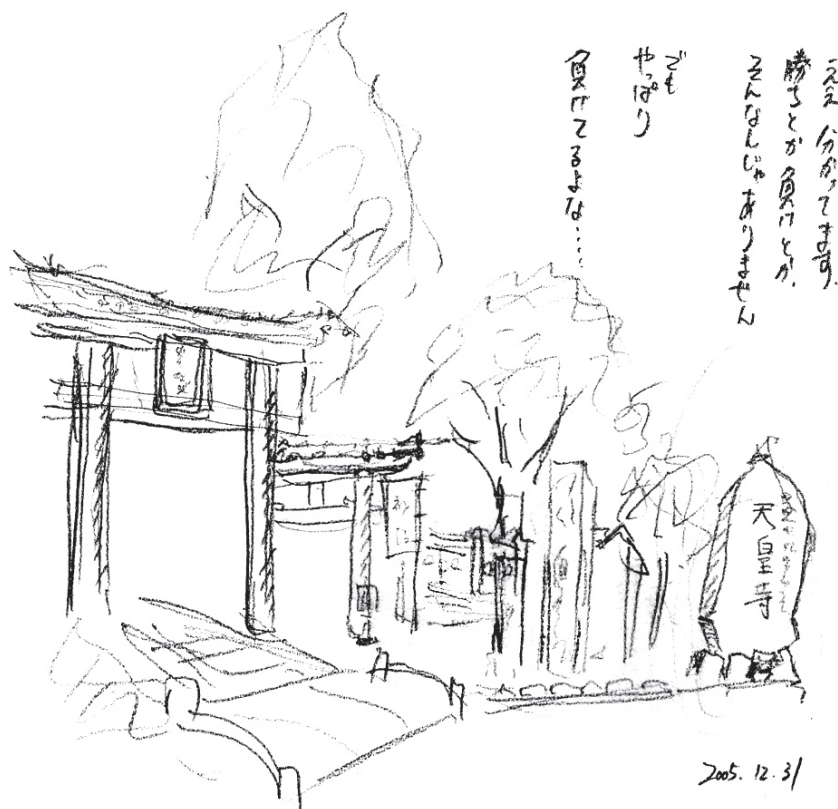 ええ 分かってます。
勝ちとか負けとか、
そんなんじゃありません
でも
やっぱり
負けてるよな……
天皇寺
2005.12.31